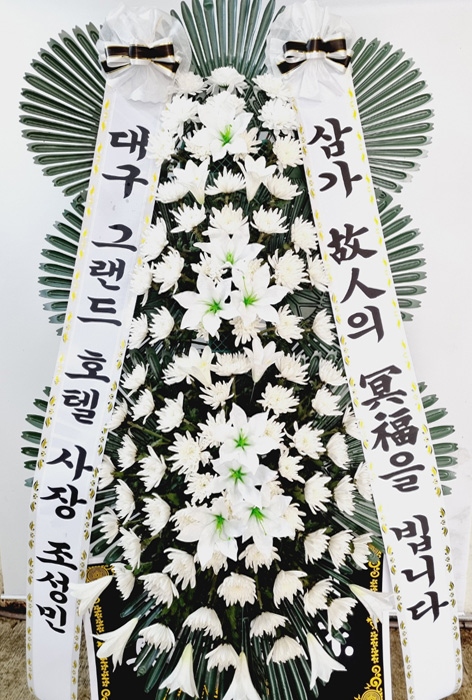 대구 그랜드 호텔 사장 조성민
삼가 故人의 冥福을 빕니다